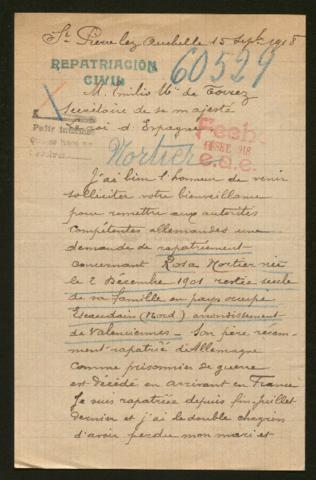 St Pierre lez Aubelle 15 Sept 1918
REPATRIACIÓN
CIVIL
60529
M. Emilio Ma de Torrez
Secrétaire de sa majesté
roi d'Espagne
Fech.
Mortier
c.a.e.
J'ai bien l'honneur de venir
solliciter votre bienveillance
pour remettre aux autorités
compétentes allemandes une
demande de rapatriement
concernant Rosa Mortier née
le 2 Décembre 1901 restée seule
de sa famille en pays occupé
Escaudain (Nord) arrondissement
de Valenciennes - Son père récem-
ment rapatrié d'Allemagne
comme prisonnier de guerre
est décédé en arrivant en France
Je suis rapatriée depuis fin Juillet
dernier et j'ai le double chagrin
d'avoir perdue mon mari et